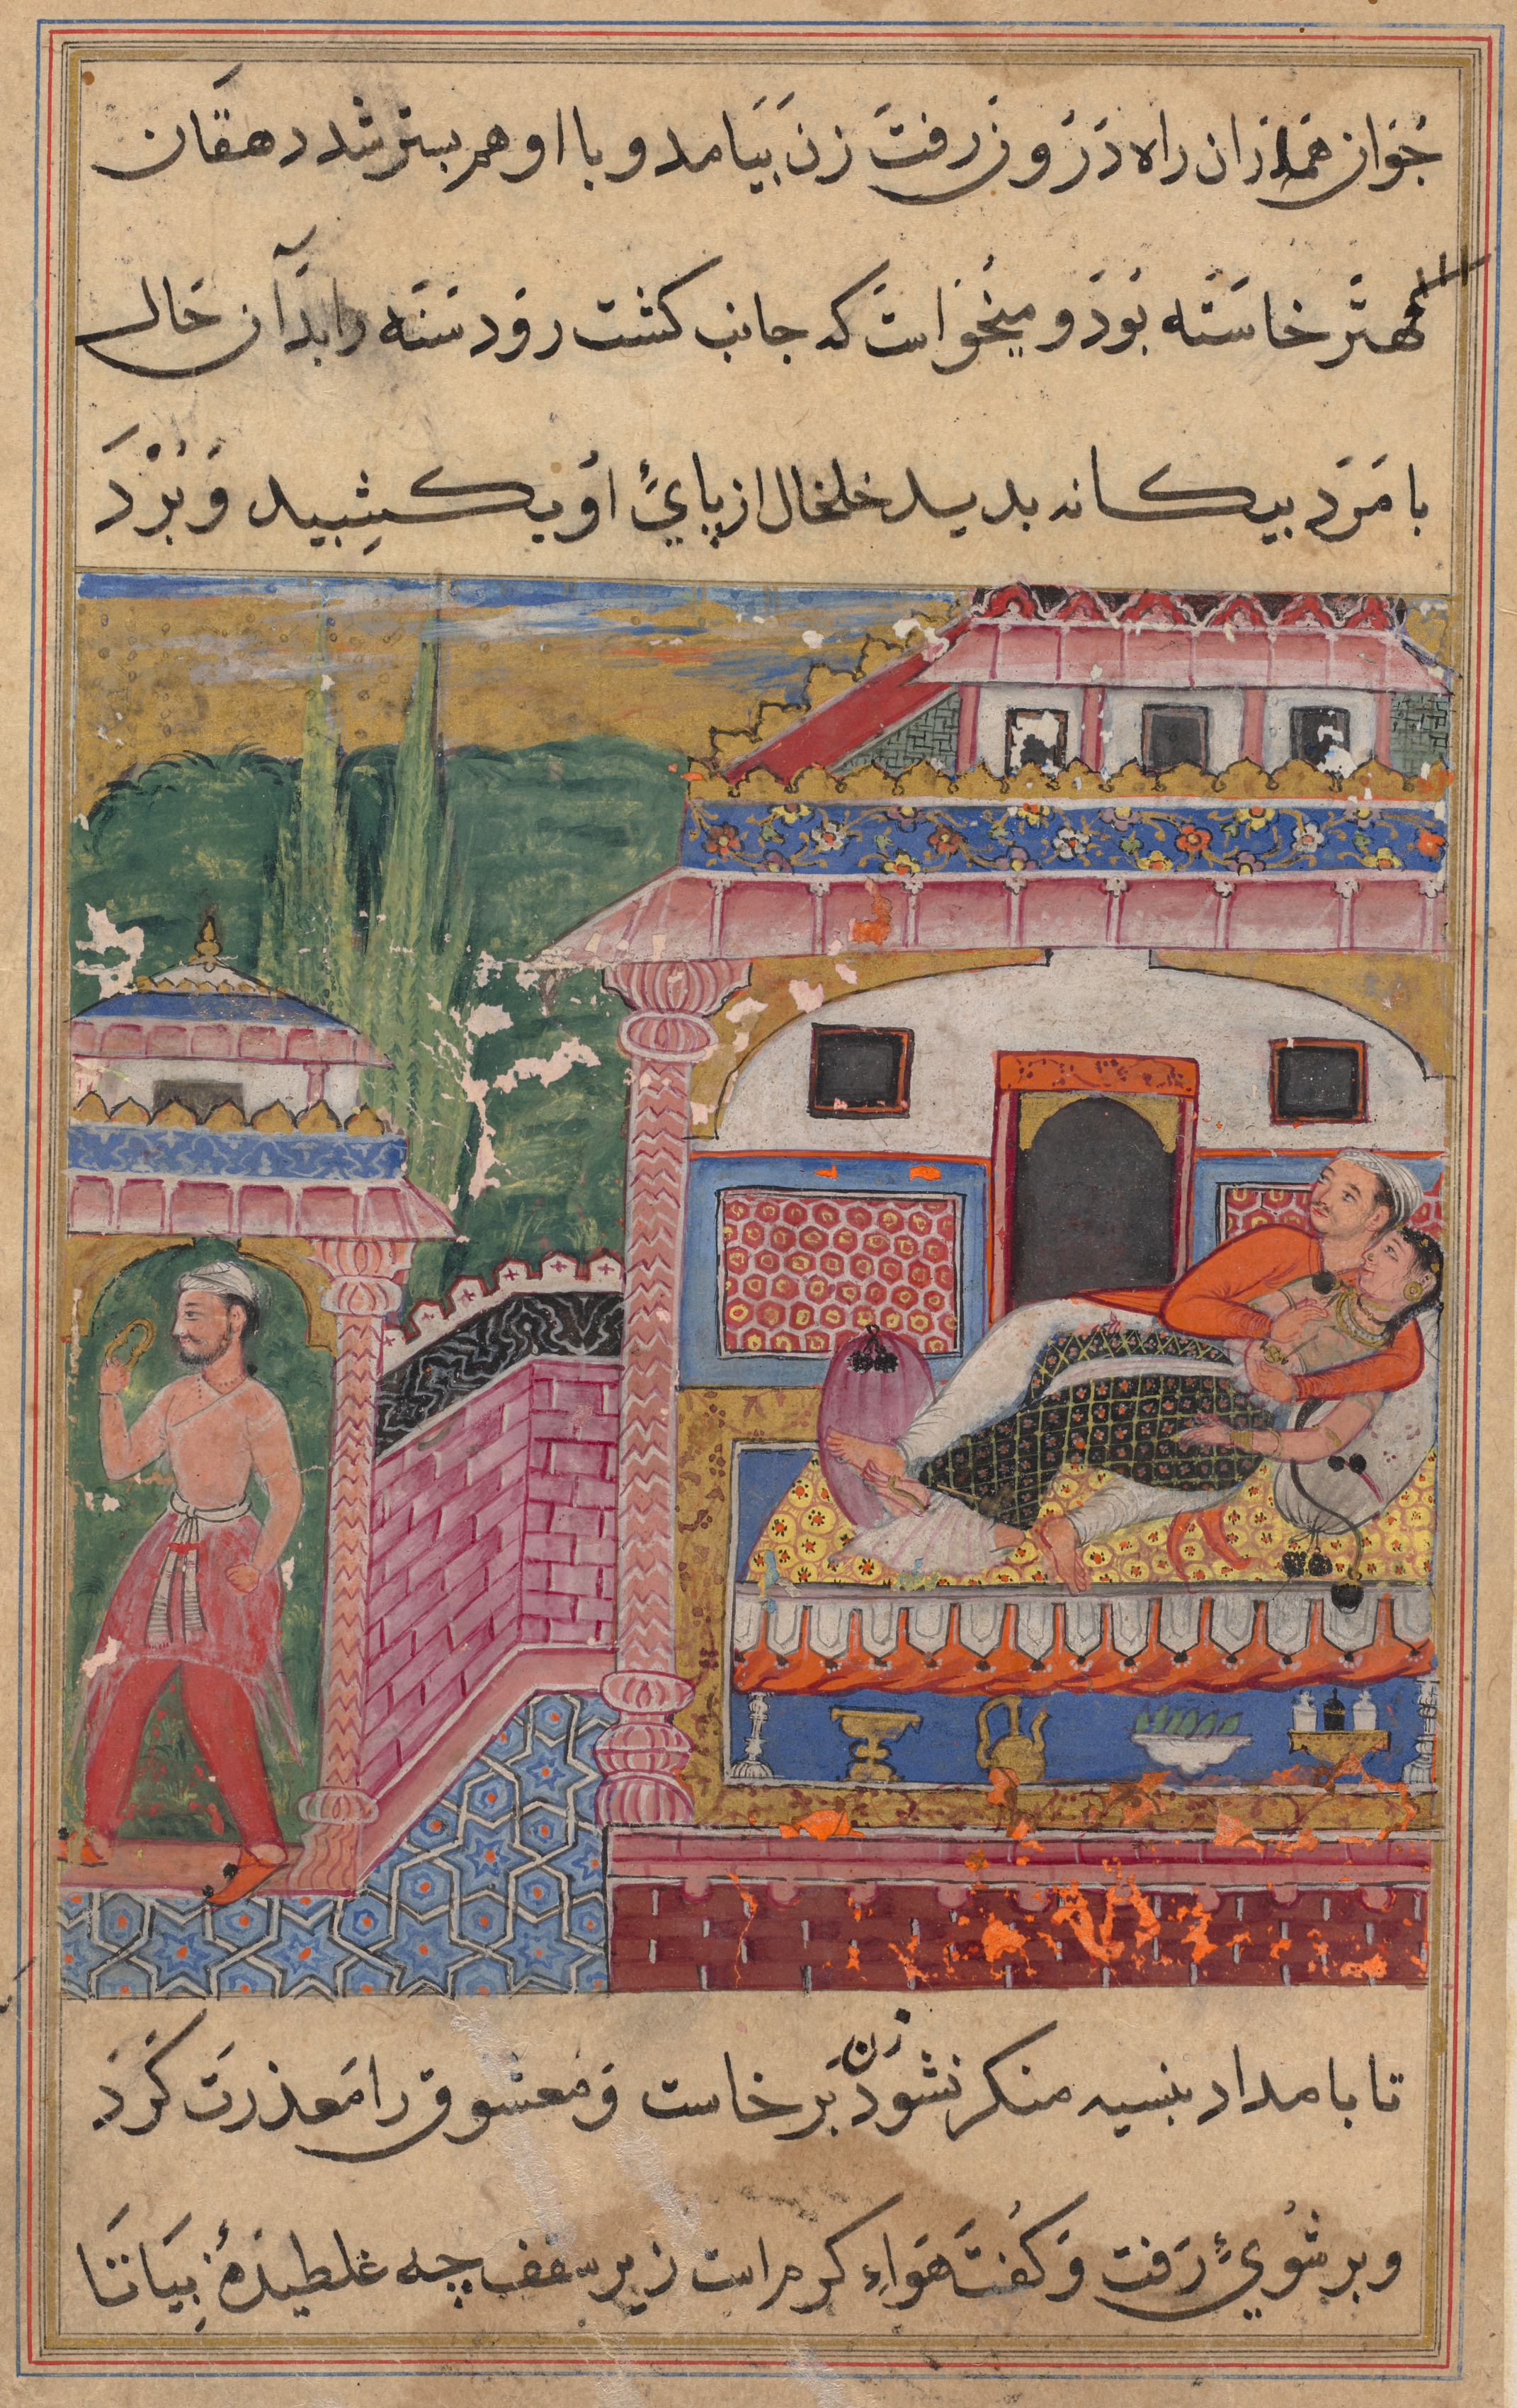 جوان هم ازان راه درون رفت زن بیامد و با او هم بستر شد دهقان
مهتر خاسته بود و میخواست که جانب کشت رود سنه را بدان حال
با مرد بیکانه بدید خلخال از پای او بکشید و ببرد
تا بامداد بنسیه منکر نشود زن برخاست و معشوق را معذرت کرد
و بر شوی رفت و کفت هواء کرم است زیر سقف چه غلطیدهٔ بیا تا